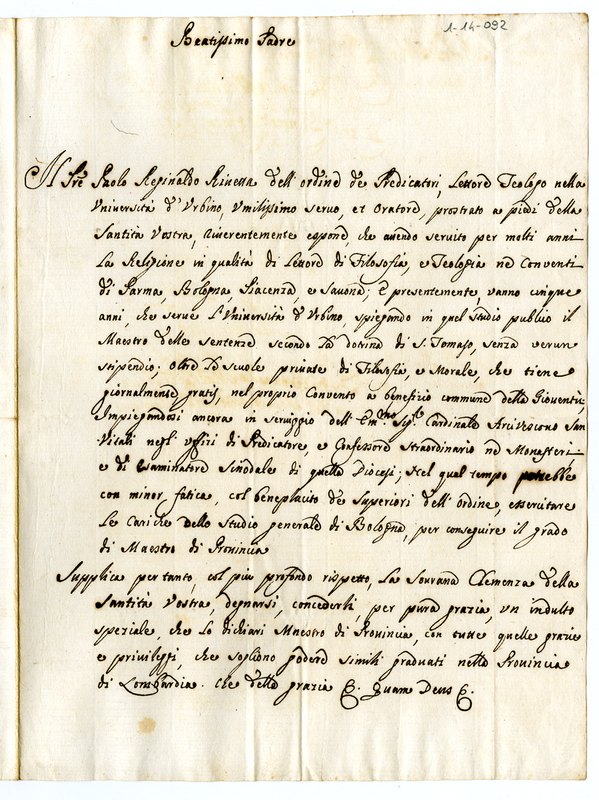 1-14-092
Beatissimo Padre
Il Pre Paolo Reginaldo Rinetta dell'ordine de Predicatori, Lettore Teologo nella
Vniversità d'Vrbino, Vmilissimo servo, et Oratore, prostrato a piedi della
Santità Vostra, riverentemente espone, che avendo servito per molti anni
La Religione in qualità di Lettore di Filosofia, e Teologia ne Conventi
di Parma, Bologna, Piacenza, e Savona; E presentemente, vanno cinque
anni, che serve l'Vniversità d'Vrbino, spiegando in quel studio publico il
Maestro delle sentenze secondo La dotrina di S. Tomaso, senza verun
stipendio; oltre Le scuole private di Filosofia, e Morale, che tiene
giornalmente gratis, nel proprio Convento a beneficio commune della Gioventù;
Impiegandosi ancora in serviggio dell'Em.mo Sig.re Cardinale Arcivescovo San
Vitali negl'uffizi di Predicatore, e Confessore straordinario ne Monasteri
e di Esaminatore Sinodale di quella Diocesi; Nel qual tempo potrebbe
con minor fatica, col beneplacito de Superiori dell'Ordine, essercitare
Le Cariche dello studio generale di Bologna, per conseguire il grado
di Maestro di Provincia
Supplica pertanto, col più profondo rispetto, La Sourana Clemenza della
Santità Vostra, degnarsi, concederli, per pura grazia, vn indulto
speziale, che Lo dichiari Maestro di Provincia, con tutte quelle grazie
e privileggi, che sogliono godere simili graduati nella Provincia
di Lombardia. Che della grazia &. Quam Deus &.